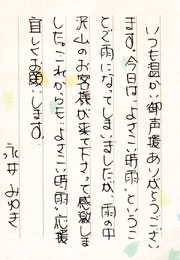 いつも温かい御声援ありがとうござい
ます。今日は"よさこい時雨"というこ
とで雨になってしまいましたが、雨の中
沢山のお客様が来て下さって感激しま
した。これからも"よさこい時雨"応援
宜しくお願いします。
永井みゆき